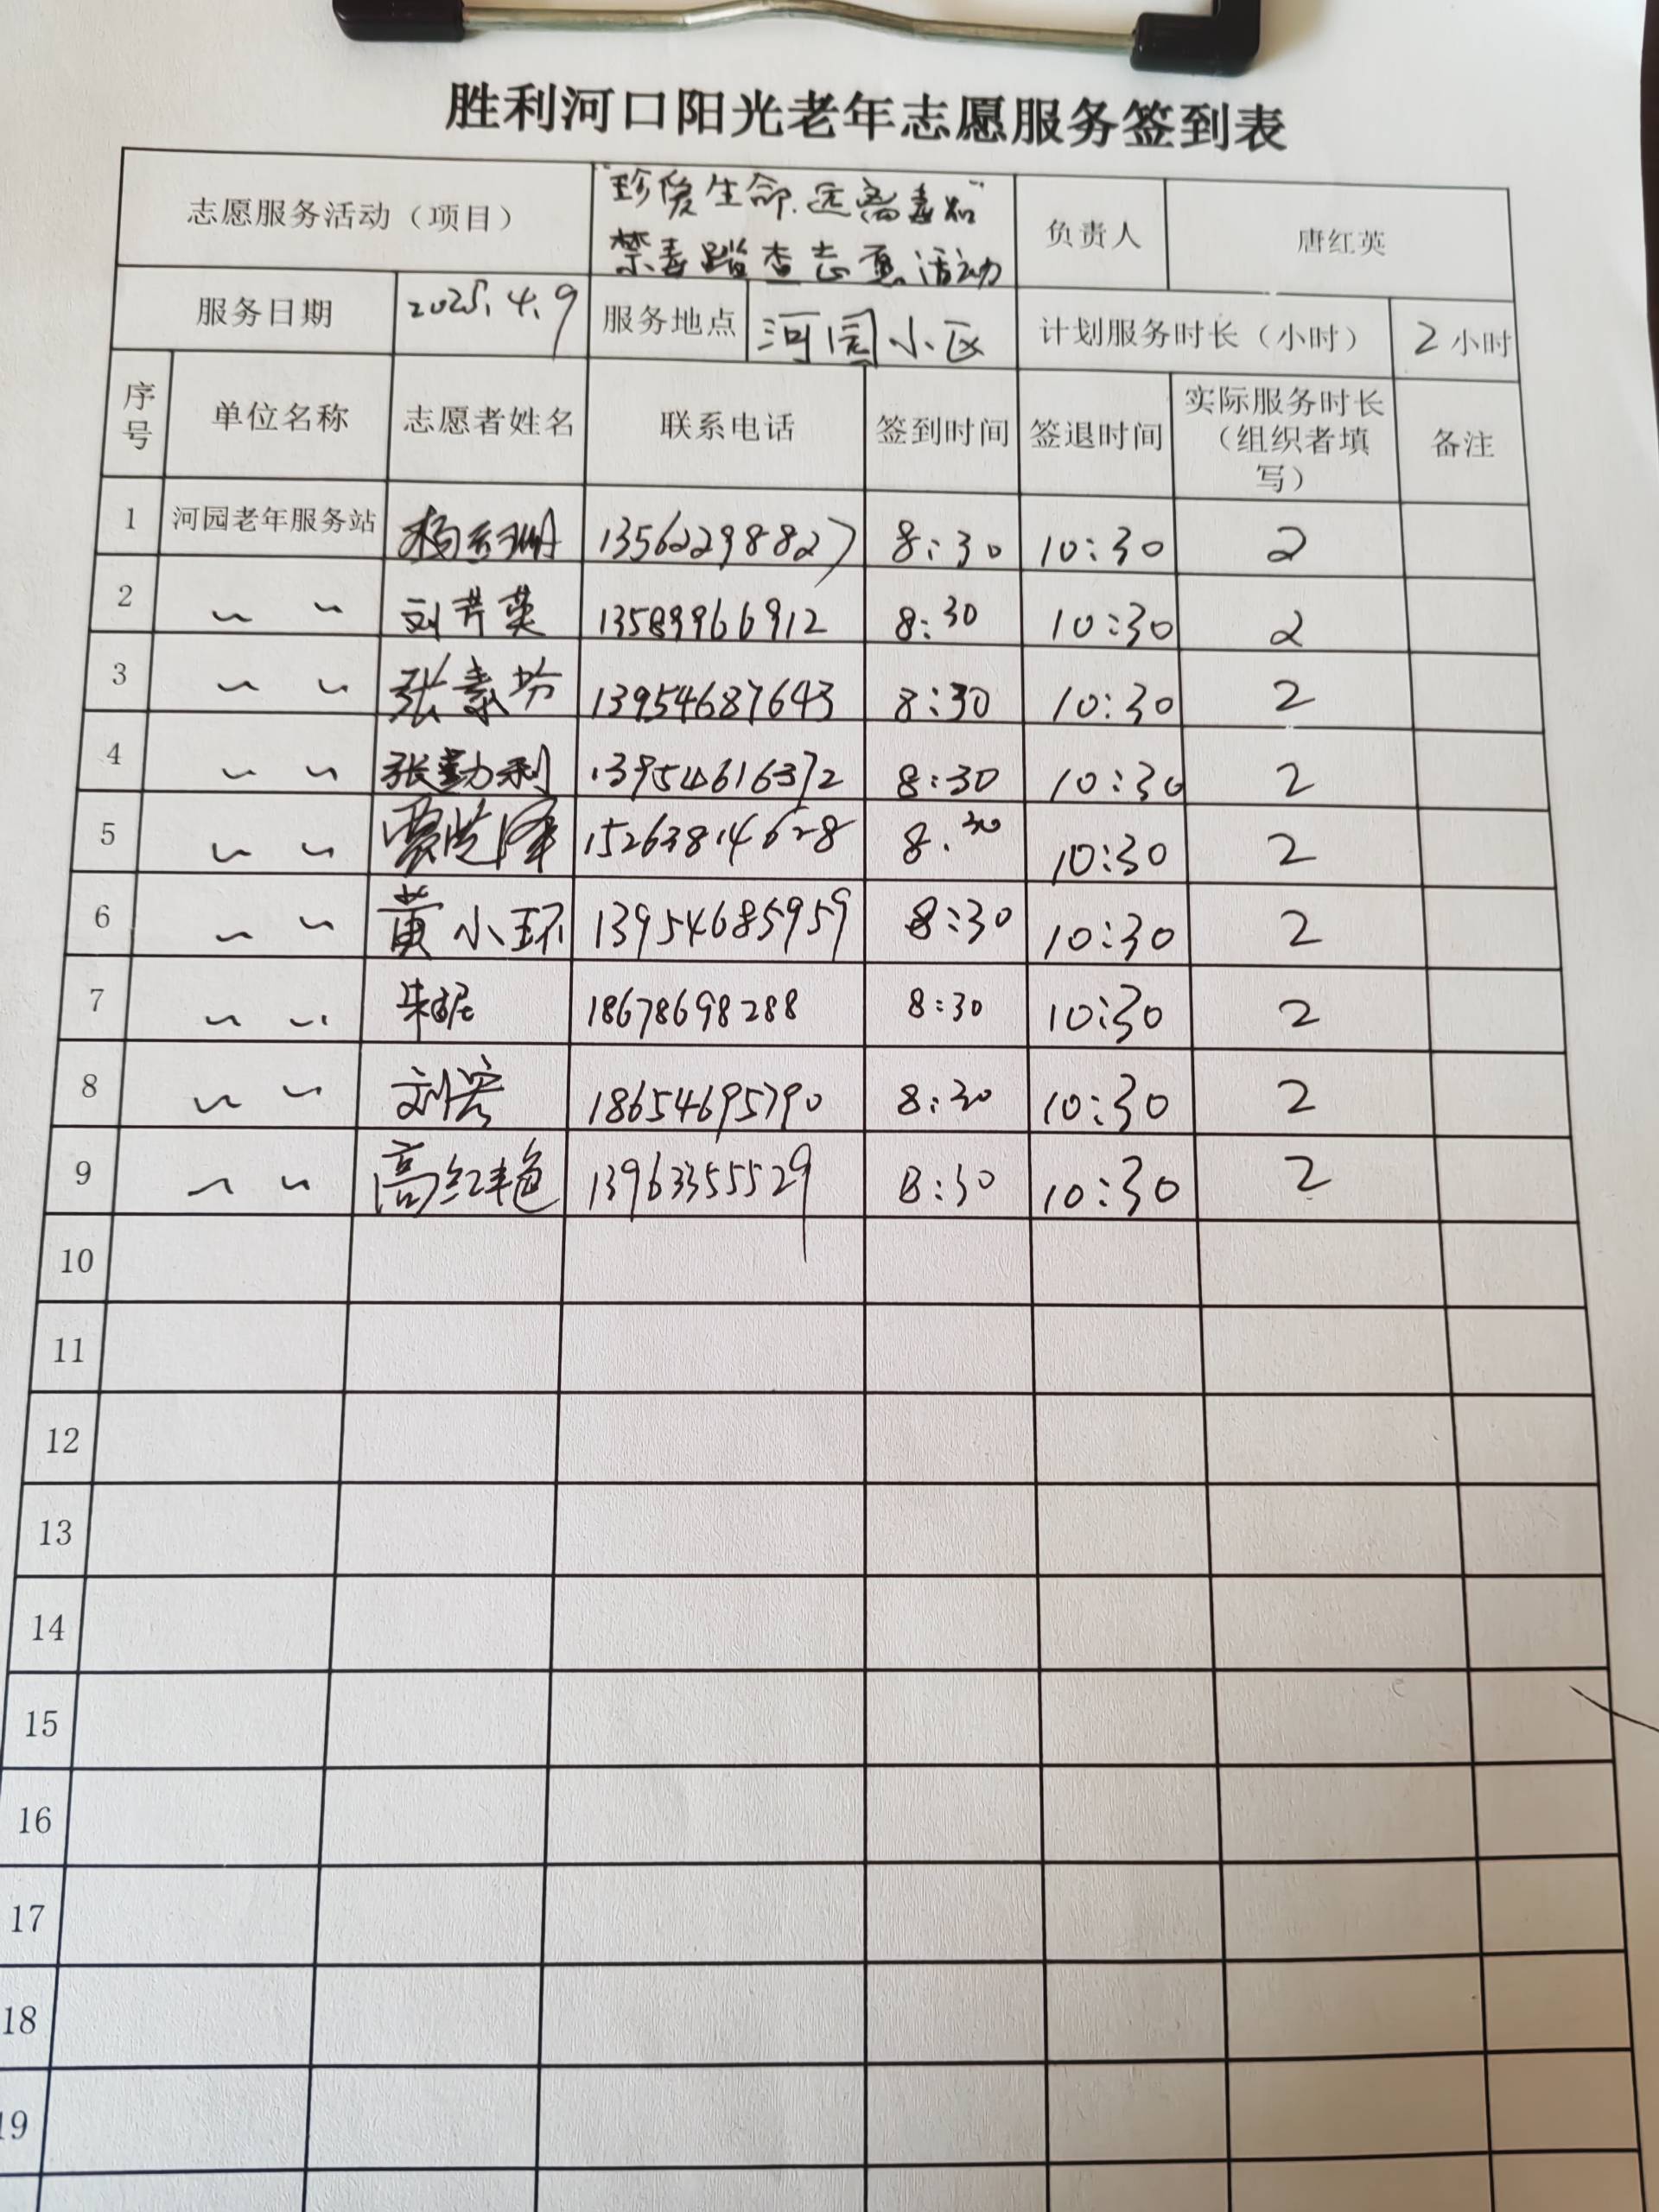 胜利河口阳光老年志愿服务签到表
志愿服务活动（项目） "珍爱生命.远离毒品" 负责人 唐红英
禁毒踏查志愿活动
服务日期 2025.4.9 服务地点 河园小区 计划服务时长（小时） 2小时
序号 单位名称 志愿者姓名 联系电话 签到时间 签退时间 实际服务时长（组织者填写） 备注
1 河园老年服务站 13562298827 8:30 10:30 2
2 〃 〃 刘芹英 13589966912 8:30 10:30 2
3 〃 〃 张素芬 13954687643 8:30 10:30 2
4 〃 〃 张勤利 13954616372 8:30 10:30 2
5 〃 〃 15263814628 8.30 10:30 2
6 〃 〃 黄小环 13954685959 8:30 10:30 2
7 〃 〃 18678698288 8:30 10:30 2
8 〃 〃 刘宏 18654695790 8:30 10:30 2
9 〃 〃 高红艳 13963355529 8:30 10:30 2
10
11
12
13
14
15
16
17
18
19